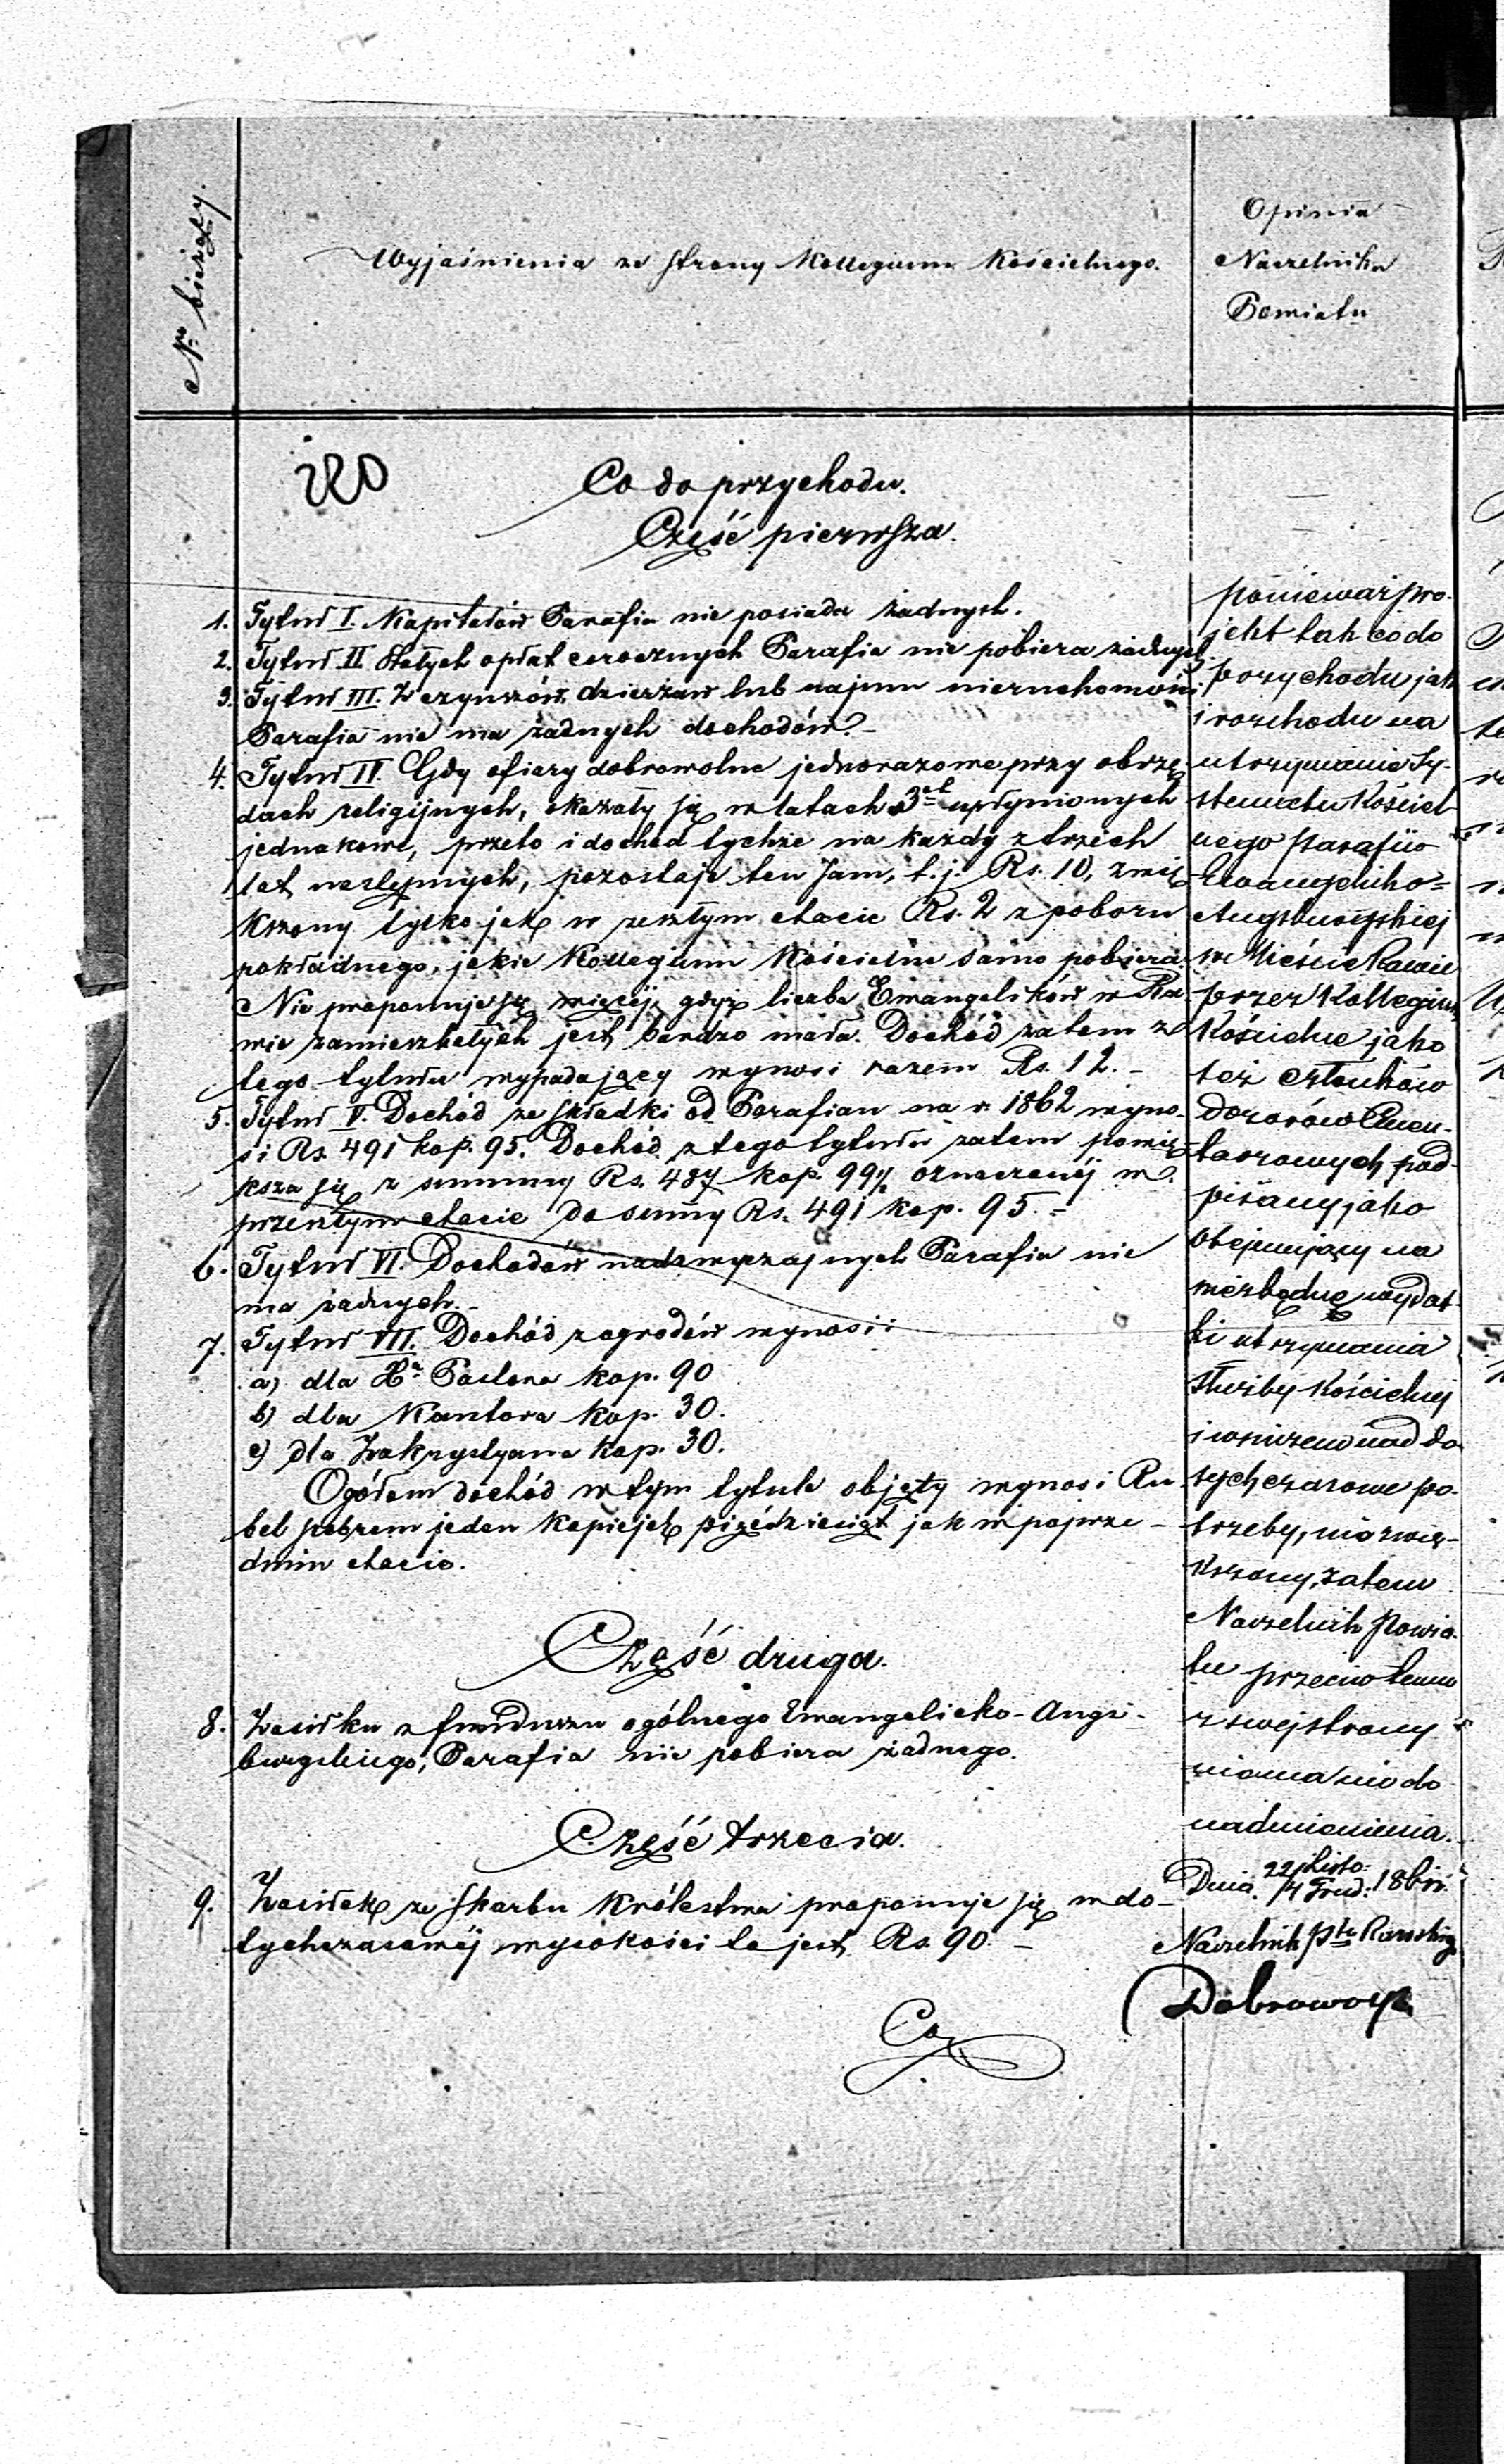 Nro bieżący.
Wyjaśnienia ze strony Kollegium Kościelnego.
Opinia
Naczelnika
Powiatu
220
Co do przychodu.
Część pierwsza.
1. Tytuł I. Kapitałów Parafia nie posiada żadnych.
2. Tytuł II. Stałych opłat corocznych Parafia nie pobiera żadnych
3. Tytuł III. Z czynszów, dzierżaw lub najmu nieruchomości
Parafia nie ma żadnych dochodów.
4. Tytuł IV. Gdy ofiary dobrowolne jednorazowe przy obrzę-
dach religijnych, okazały się w latach 3ch upłynionych
jednakowe, przeto i dochód tychże na każdy z trzech
lat następnych, pozostaje ten sam, t.j. Rs. 10, zwię-
kszony tylko jak w zeszłym etacie Rs. 2 z poboru
pokładnego, jakie Kollegium Kościelne samo pobiera.
Nie proponuje się więcej, gdyż liczba Ewangelików w Ra-
wie zamieszkałych jest bardzo mała. Dochód zatem z
tego tytułu wypadający wynosi razem Rs. 12. -
5. Tytuł V. Dochód ze składki od Parafian na r. 1862 wyno-
si Rs. 491 kop. 95. Dochód z tego tytułu zatem powię-
ksza się z summy Rs. 487 kop. 99½ oznaczonéj w
przeszłym etacie do summy Rs. 491 kop. 95. -
6. Tytuł VI. Dochodów nadzwyczajnych Parafia nie
ma żadnych. -
7. Tytuł VII. Dochód z ogrodów wynosi:
a) dla Xa Pastora kop. 90
b) dla Kantora kop. 30.
c) dla Zakrystyana kop. 30.
Ogółem dochód w tym tytule objęty wynosi Ru-
bel srebrem jeden kopiejek pięćdziesiąt jak w poprze-
dnim etacie.
Część druga.
8. Zasiłku z funduszu ogólnego Ewangelicko-Augs-
burgskiego, Parafia nie pobiera żadnego.
Część trzecia.
9. Zasiłek ze Skarbu Królestwa proponuje się w do-
tychczasowéj wysokości to jest Rs. 90. -
Co
ponieważ pro-
jekt tak co do
przychodu jak
i rozchodu na
utrzymanie Sy-
stematu Kościel
nego Parafii
Ewangelicko=
Augsburgskiej
w Mieście Rawie
przez Kollegium
Kościelne jako
też członków
Dozorów Elemen-
tarowych pod-
pisany, jako
obejmujący na
niezbędne wydat-
ki utrzymania
służby Kościelnej
i w niczem nad do-
tychczasowe po-
trzeby, nie zwię-
kszony, zatem
Naczelnik Powia-
tu przeciw temu
z swej strony
niema nic do
nadmienienia.
Dnia 22 Listo: / 4 Grud: 186
Naczelnik Ptu Rawskiego